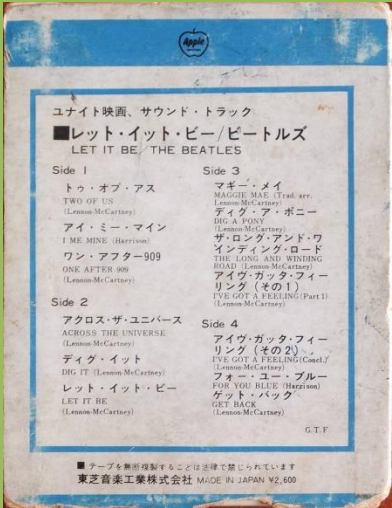 Apple
ユナイト映画、サウンド・トラック
■レット・イット・ビー/ビートルズ
LET IT BE/THE BEATLES
Side 1
トゥ・オブ・アス
TWO OF US
(Lennon-McCartney)
アイ・ミー・マイン
I ME MINE (Harrison)
ワン・アフター909
ONE AFTER 909
(Lennon-McCartney)
Side 2
アクロス・ザ・ユニバース
ACROSS THE UNIVERSE
(Lennon-McCartney)
ディグ・イット
DIG IT (Lennon-McCartney)
レット・イット・ビー
LET IT BE
(Lennon-McCartney)
Side 3
マギー・メイ
MAGGIE MAE (Trad. arr.
Lennon-McCartney)
ディグ・ア・ポニー
DIG A PONY
(Lennon-McCartney)
ザ・ロング・アンド・ワ
インディング・ロード
THE LONG AND WINDING
ROAD (Lennon-McCartney)
アイヴ・ガッタ・フィー
リング (その1)
I'VE GOT A FEELING(Part 1)
(Lennon-McCartney)
Side 4
アイヴ・ガッタ・フィー
リング (その2)
I'VE GOT A FEELING(Concl.)
(Lennon-McCartney)
フォー・ユー・ブルー
FOR YOU BLUE (Harrison)
ゲット・バック
GET BACK
(Lennon-McCartney)
G.T.F
■ テープを無断複製することは法律で禁じられています
東芝音楽工業株式会社 MADE IN JAPAN ¥2,600